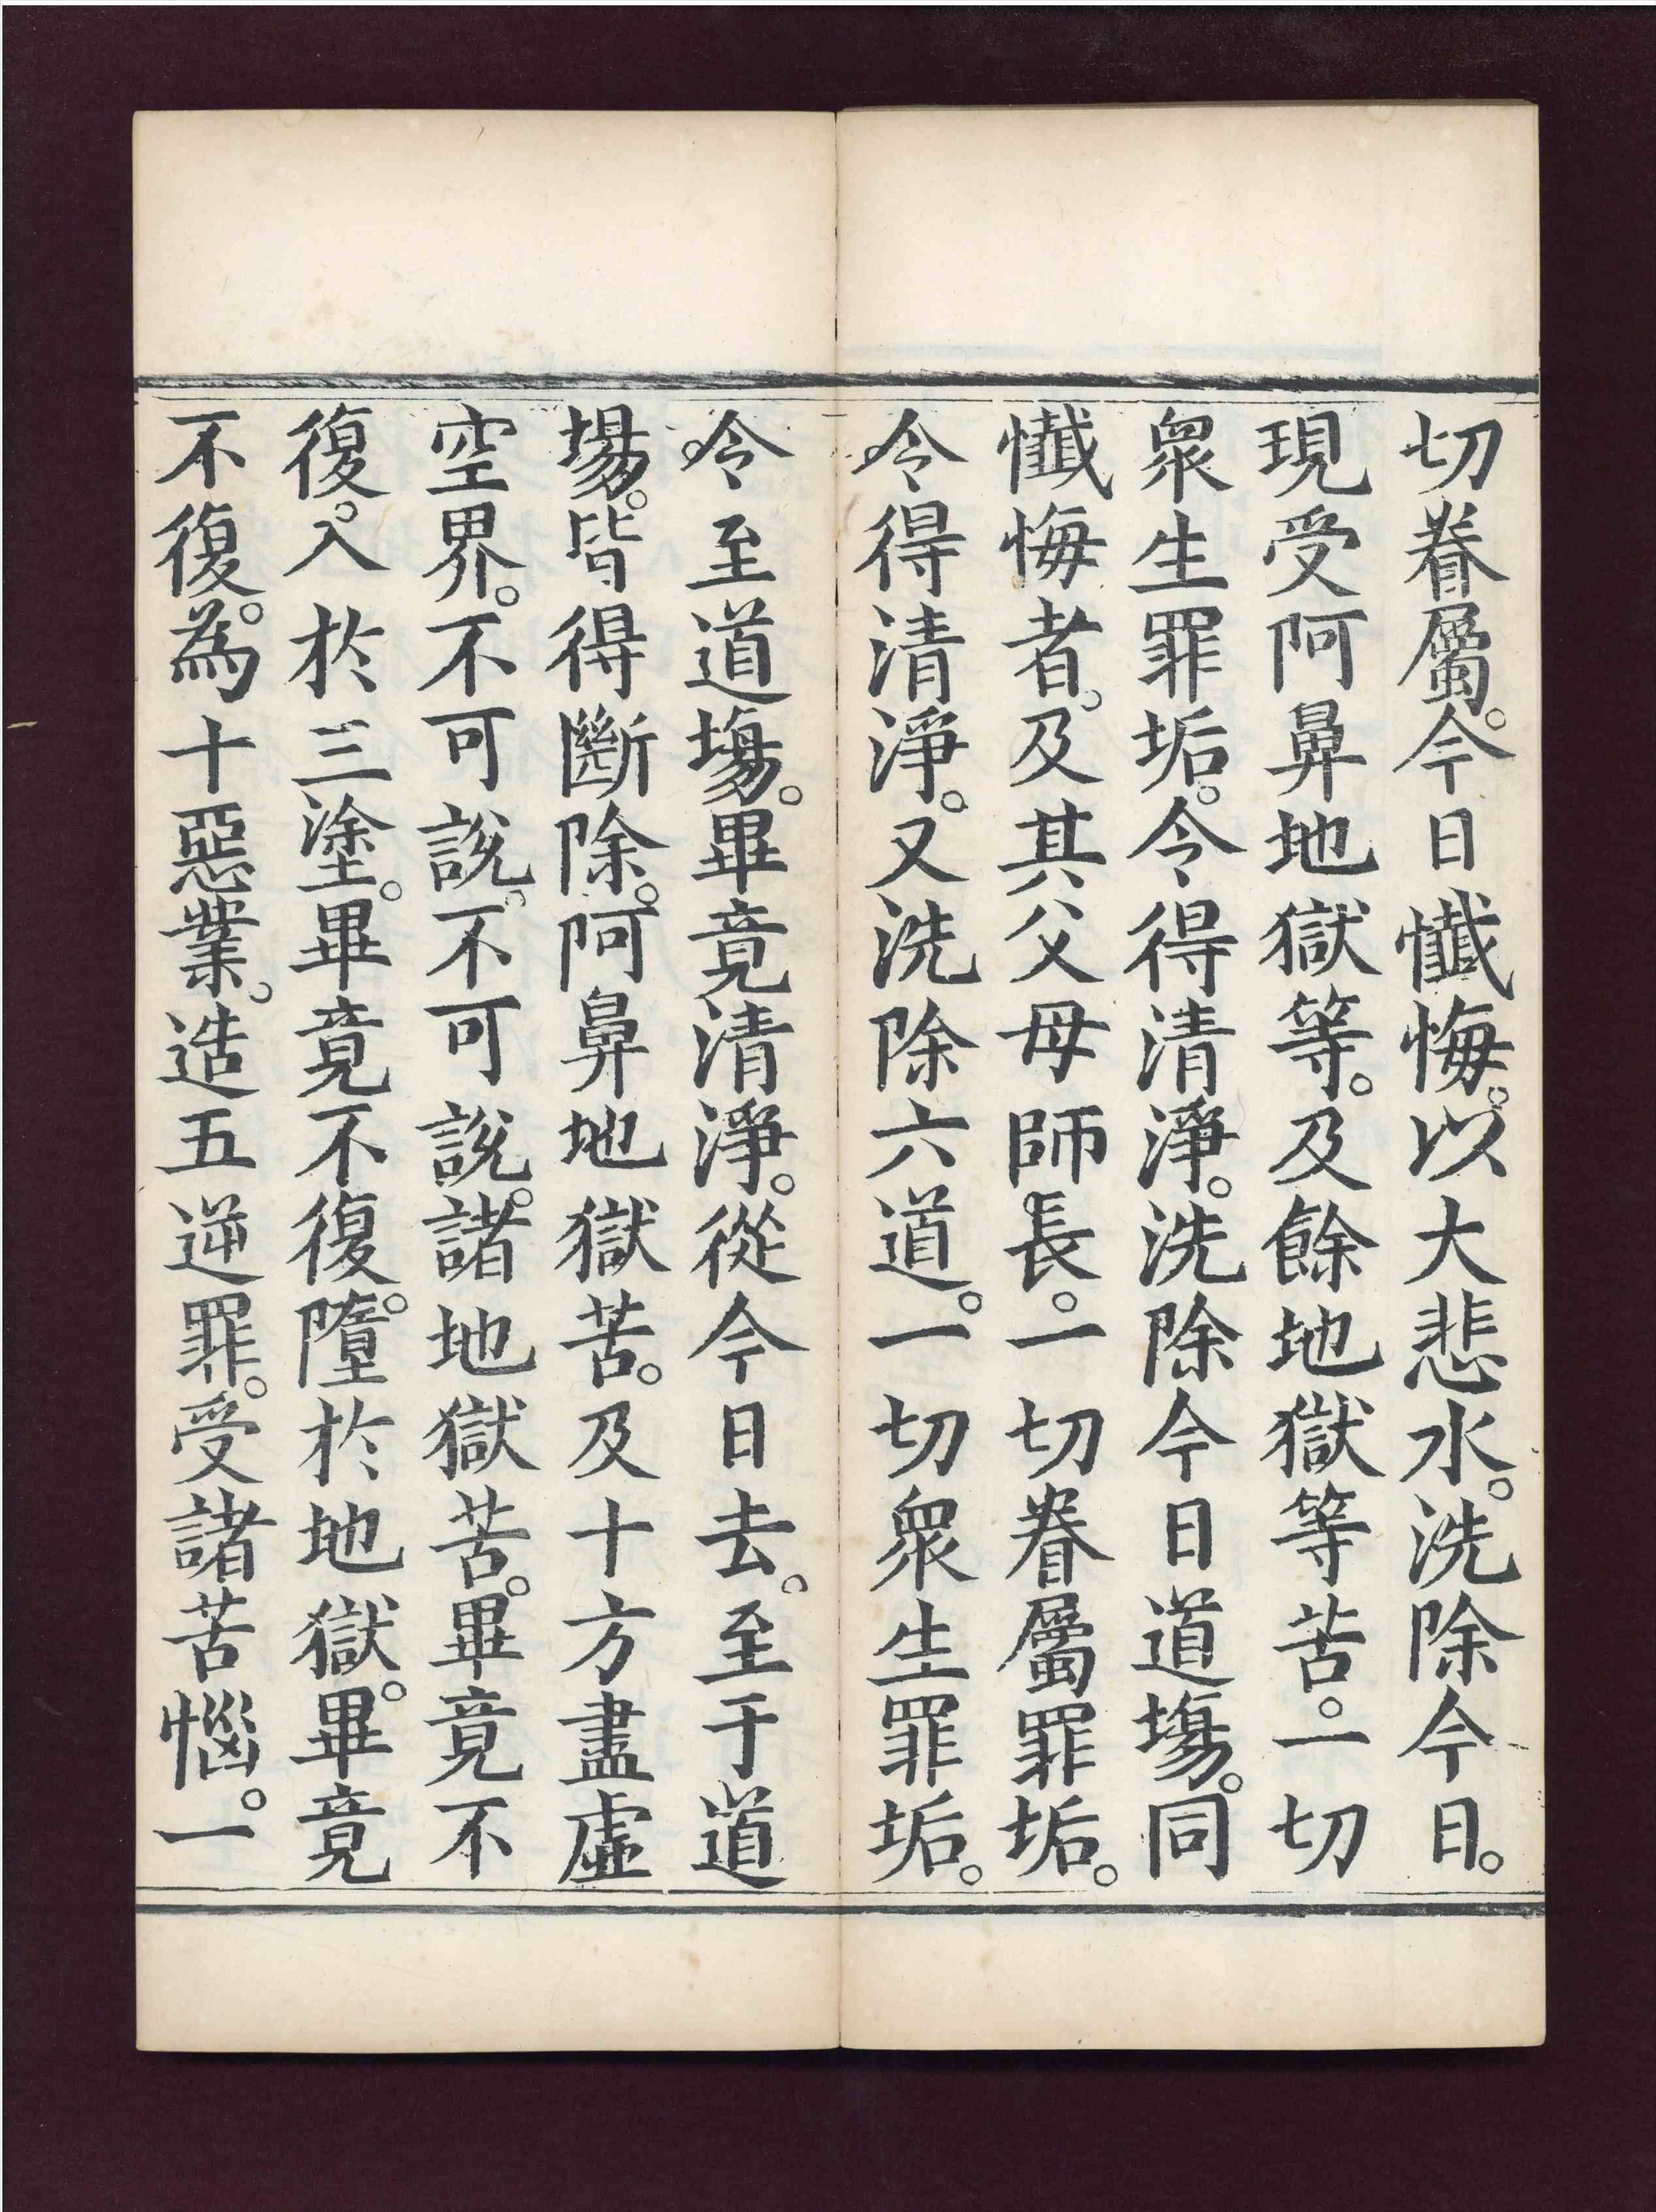 切眷屬。今日懺悔。以大悲水。洗除今日。
現受阿鼻地獄等。及餘地獄等苦。一切
眾生罪垢。令得清淨。洗除今日道場。同
懺悔者。及其父母師長。一切眷屬罪垢。
令得清淨。又洗除六道。一切眾生罪垢。
令至道場。畢竟清淨。從今日去。至于道
場。皆得斷除。阿鼻地獄苦。及十方盡虛
空界。不可說。不可說。諸地獄苦。畢竟不
復。入於三塗。畢竟不復。墮於地獄。畢竟
不復。為十惡業。造五逆罪。受諸苦惱。一